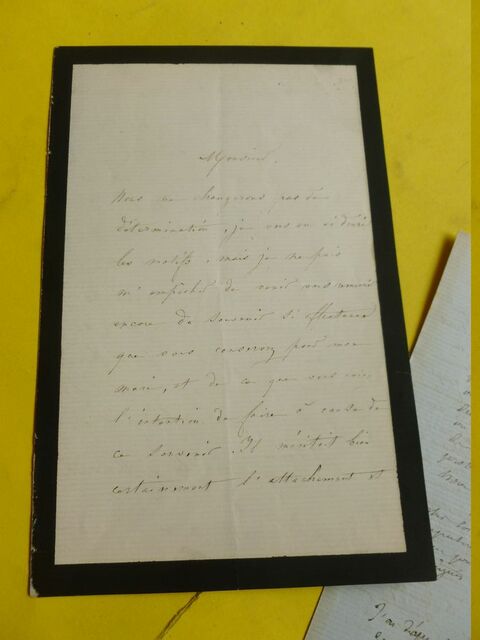 Monsieur.
Nous ne changerons pas de
détermination, je vous en ai déduit
les motifs, mais je ne puis
m'empêcher de venir vous remercier
encore du souvenir si affectueux
que vous conservez pour mon
mari, et de ce que vous avez
l'intention de faire à cause de
ce souvenir. Il méritait bien
certainement l'attachement et
J'ai